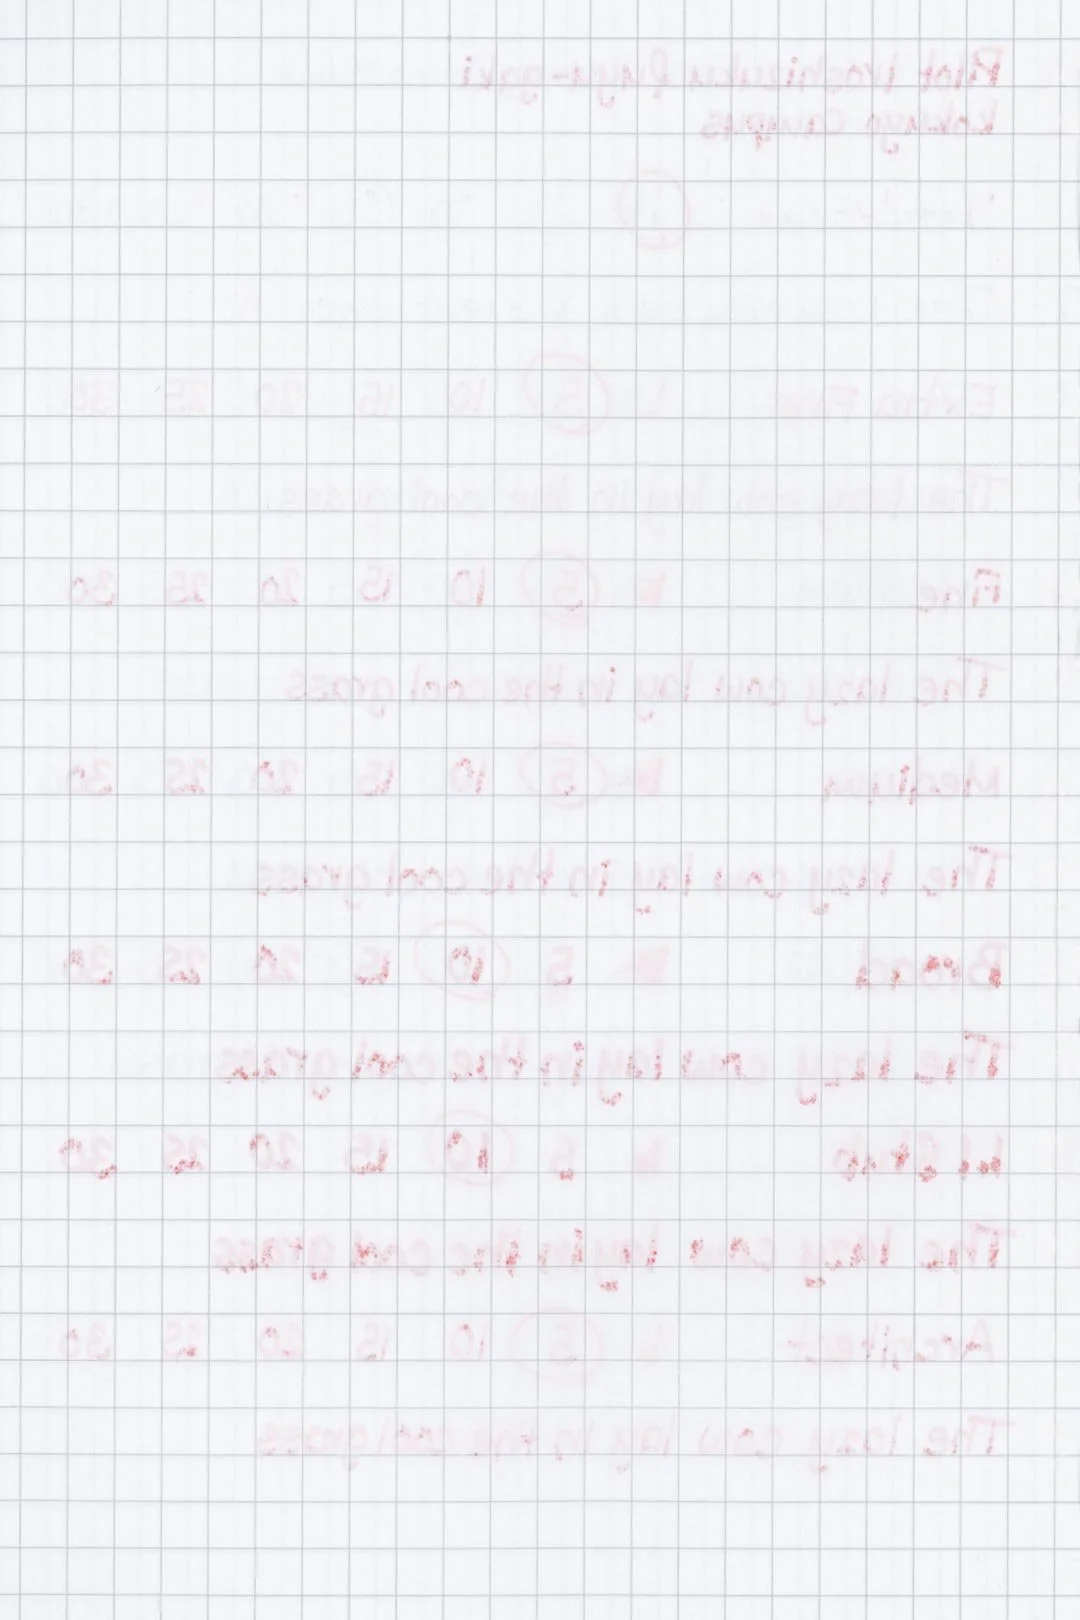 Pilot Iroshizuku Fuyu-gaki
Kokuyo Campus
Extra Fine 5 10 15 20 25 30
The lazy cow lay in the cool grass
Fine 5 10 15 20 25 30
The lazy cow lay in the cool grass
Medium 5 10 15 20 25 30
The lazy cow lay in the cool grass
Broad 5 10 15 20 25 30
The lazy cow lay in the cool grass
5 10 15 20 25 30
The lazy cow lay in the cool grass
Architect 5 10 15 20 25 30
The lazy cow lay in the cool grass